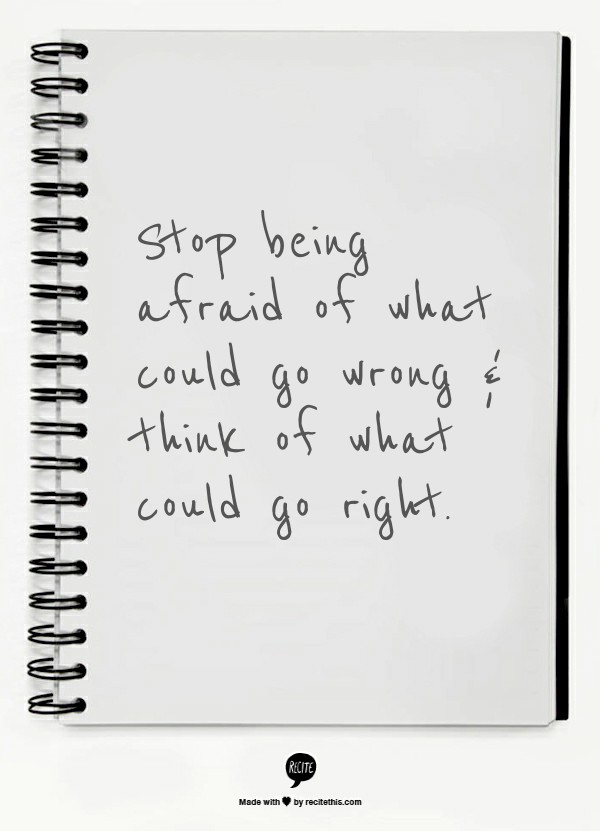 Stop being
afraid of what
could go wrong &
think of what
could go right.
RECITE
Made with ♥ by recitethis.com